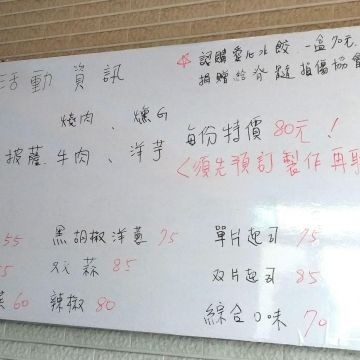 ☆ 認購愛心水餃 一盒70元
捐贈給脊髓損傷協會
活動資訊
燒肉、燻
披薩、牛肉、洋芋
每份特價80元!
<須先預訂製作再
55 黑胡椒洋蔥 75 單片起司 75
5 双蒜 85 双片起司 85
菜 60 辣椒 80 綜合口味 70